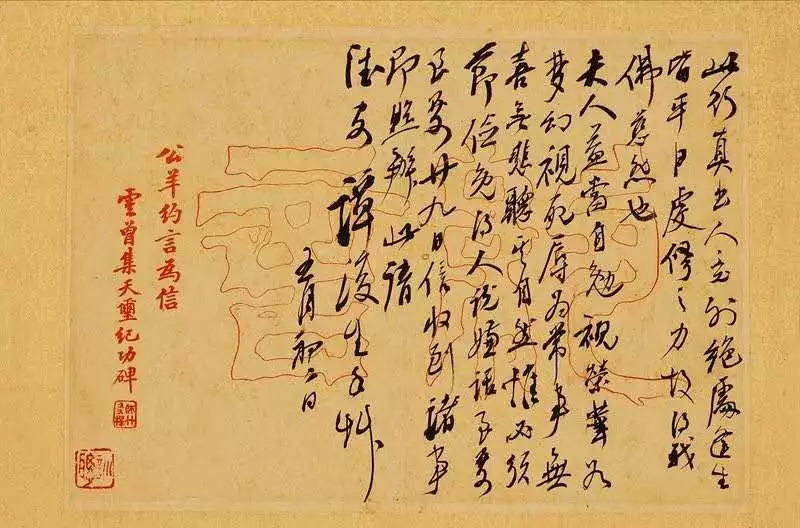 此行真出人意外絕處逢生
皆平日虔修之力故得我
佛慈悲也
夫人益當自勉視榮華如
夢幻視死辱為常事無
喜無悲聽其自然惟必須
節儉免得人說嫌話至要
至要廿九日信收到諸事
即照辦此請
德安 譚復生手草
五月初二日
公羊約言為信
雲曾集天璽紀功碑